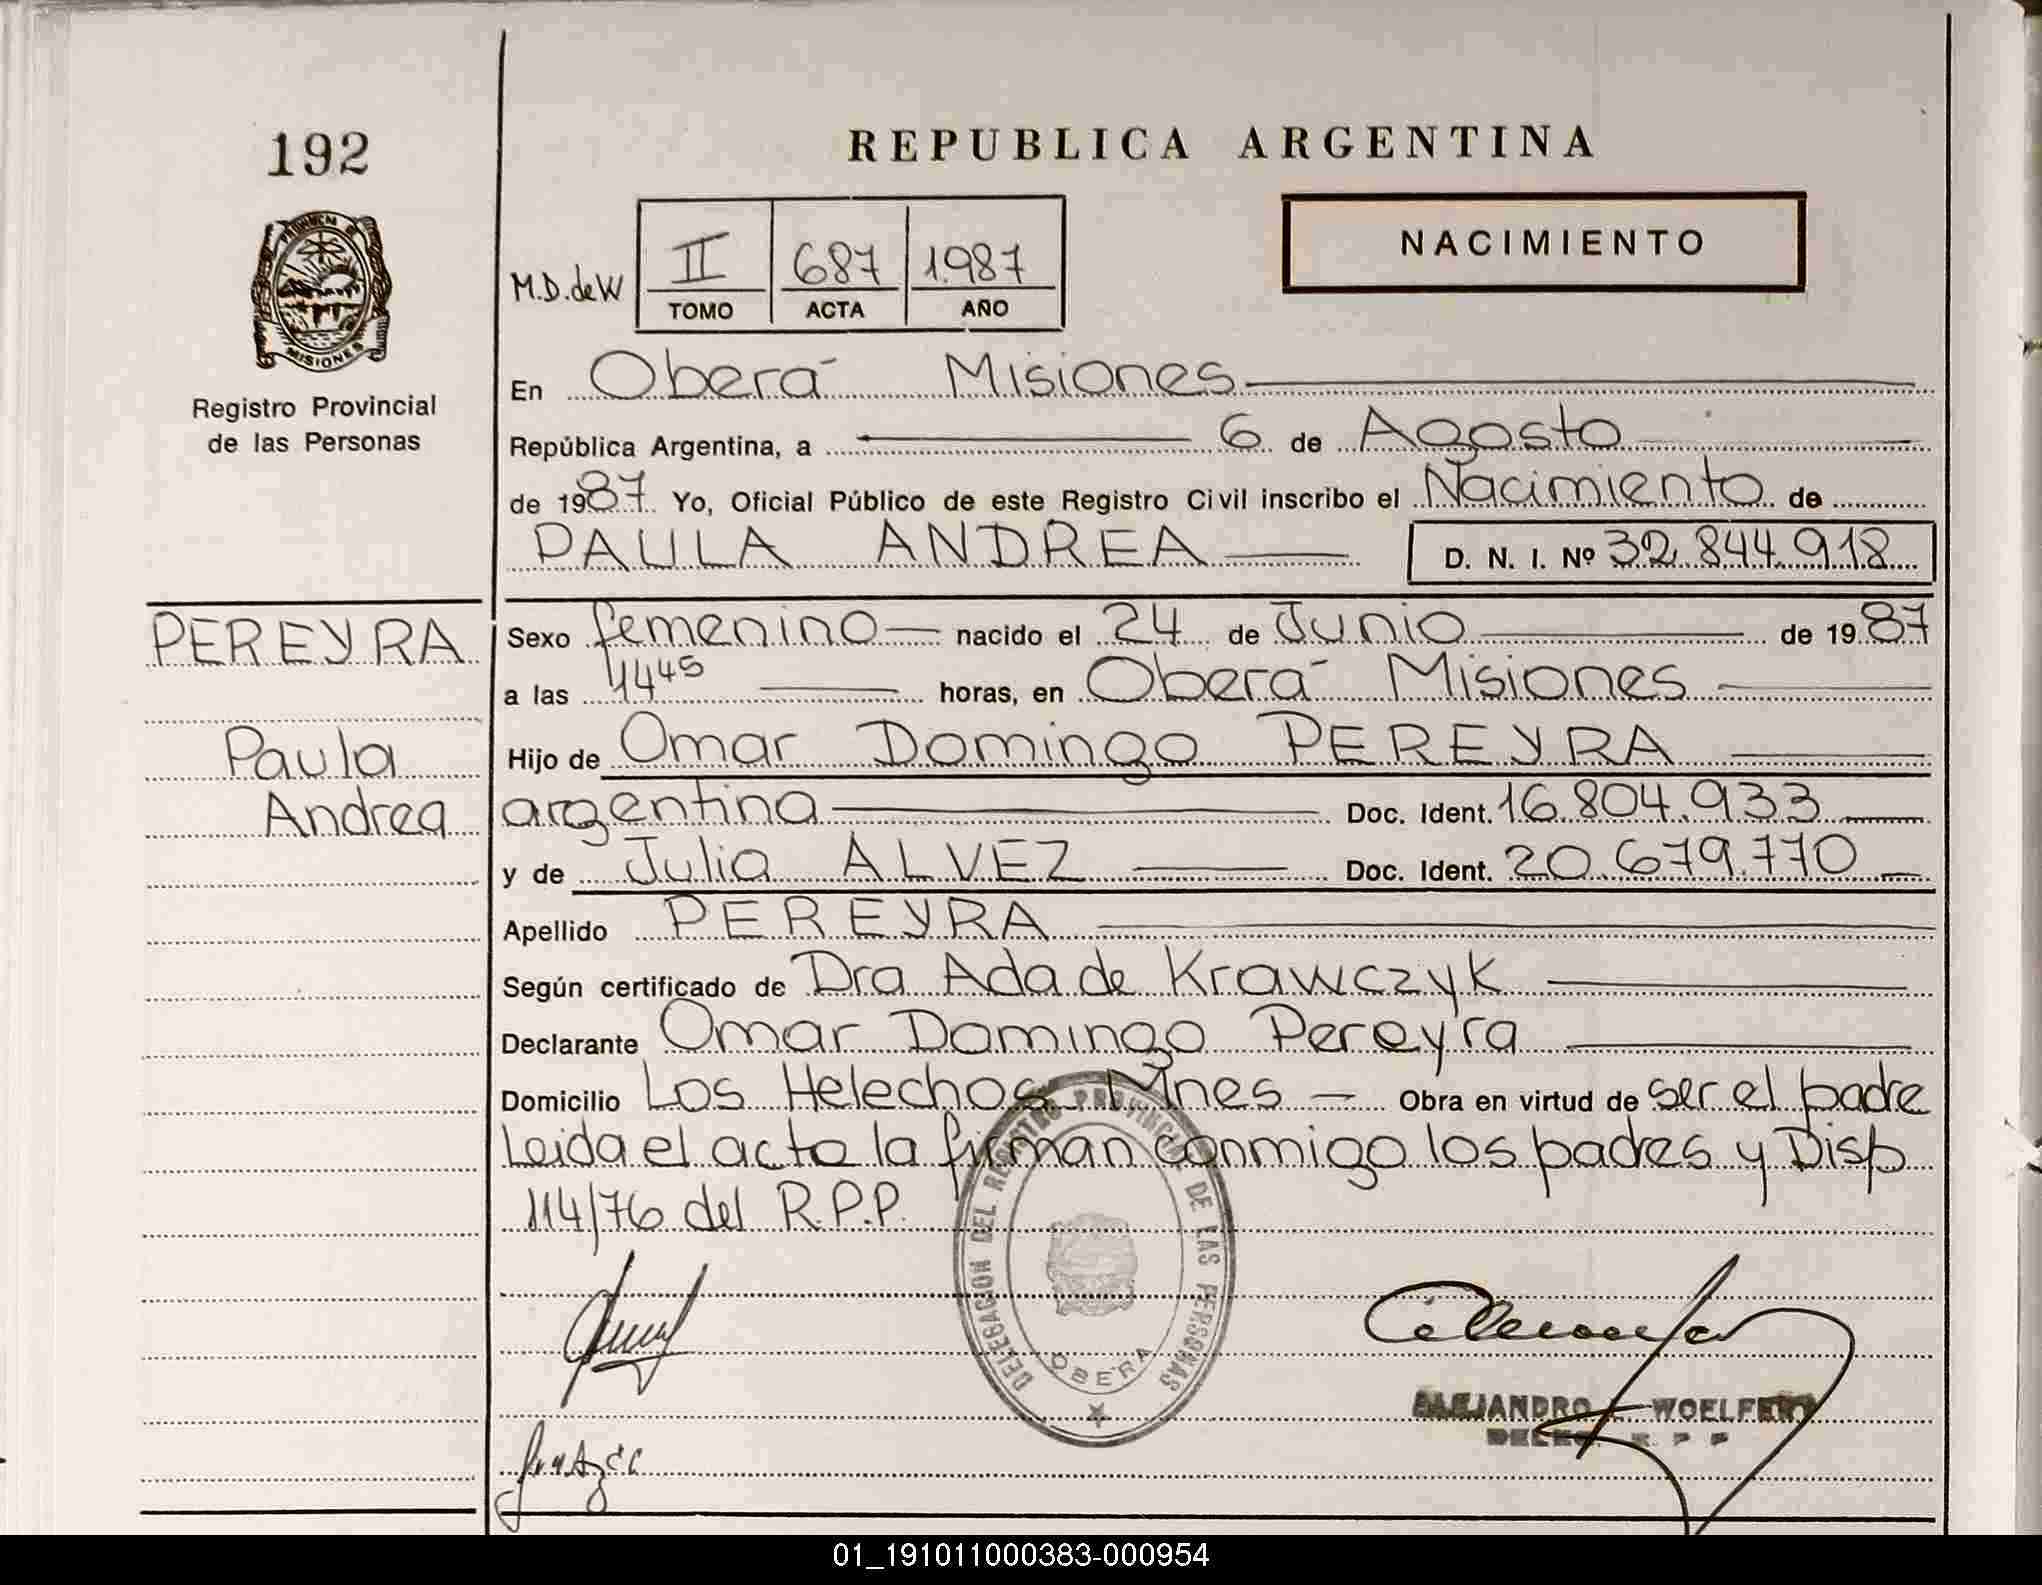 192
REPUBLICA ARGENTINA
NACIMIENTO
M.D. de W
II 687 1.987
TOMO ACTA AÑO
PROVINCIA DE
MISIONES
Registro Provincial
de las Personas
En Oberá Misiones
República Argentina, a 6 de Agosto
de 1987 Yo, Oficial Público de este Registro Civil inscribo el Nacimiento de
PAULA ANDREA D. N. I. Nº 32.844.918
PEREYRA
Paula
Andrea
Sexo femenino nacido el 24 de Junio de 1987
a las 14 45 horas, en Oberá Misiones
Hijo de Omar Domingo PEREYRA
argentina Doc. Ident. 16.804.933
y de Julia ALVEZ Doc. Ident. 20.679.770
Apellido PEREYRA
Según certificado de Dra Ada de Krawczyk
Declarante Omar Domingo Pereyra
Domicilio Los Helechos Mnes Obra en virtud de ser el padre
Leida el acta la firman conmigo los padres y Disp
114/76 del R.P.P.
DELEGACION DEL REGISTRO PROVINCIAL DE LAS PERSONAS
OBERA
ALEJANDRO WOELFERT
DELEG. R P P
01_191011000383-000954